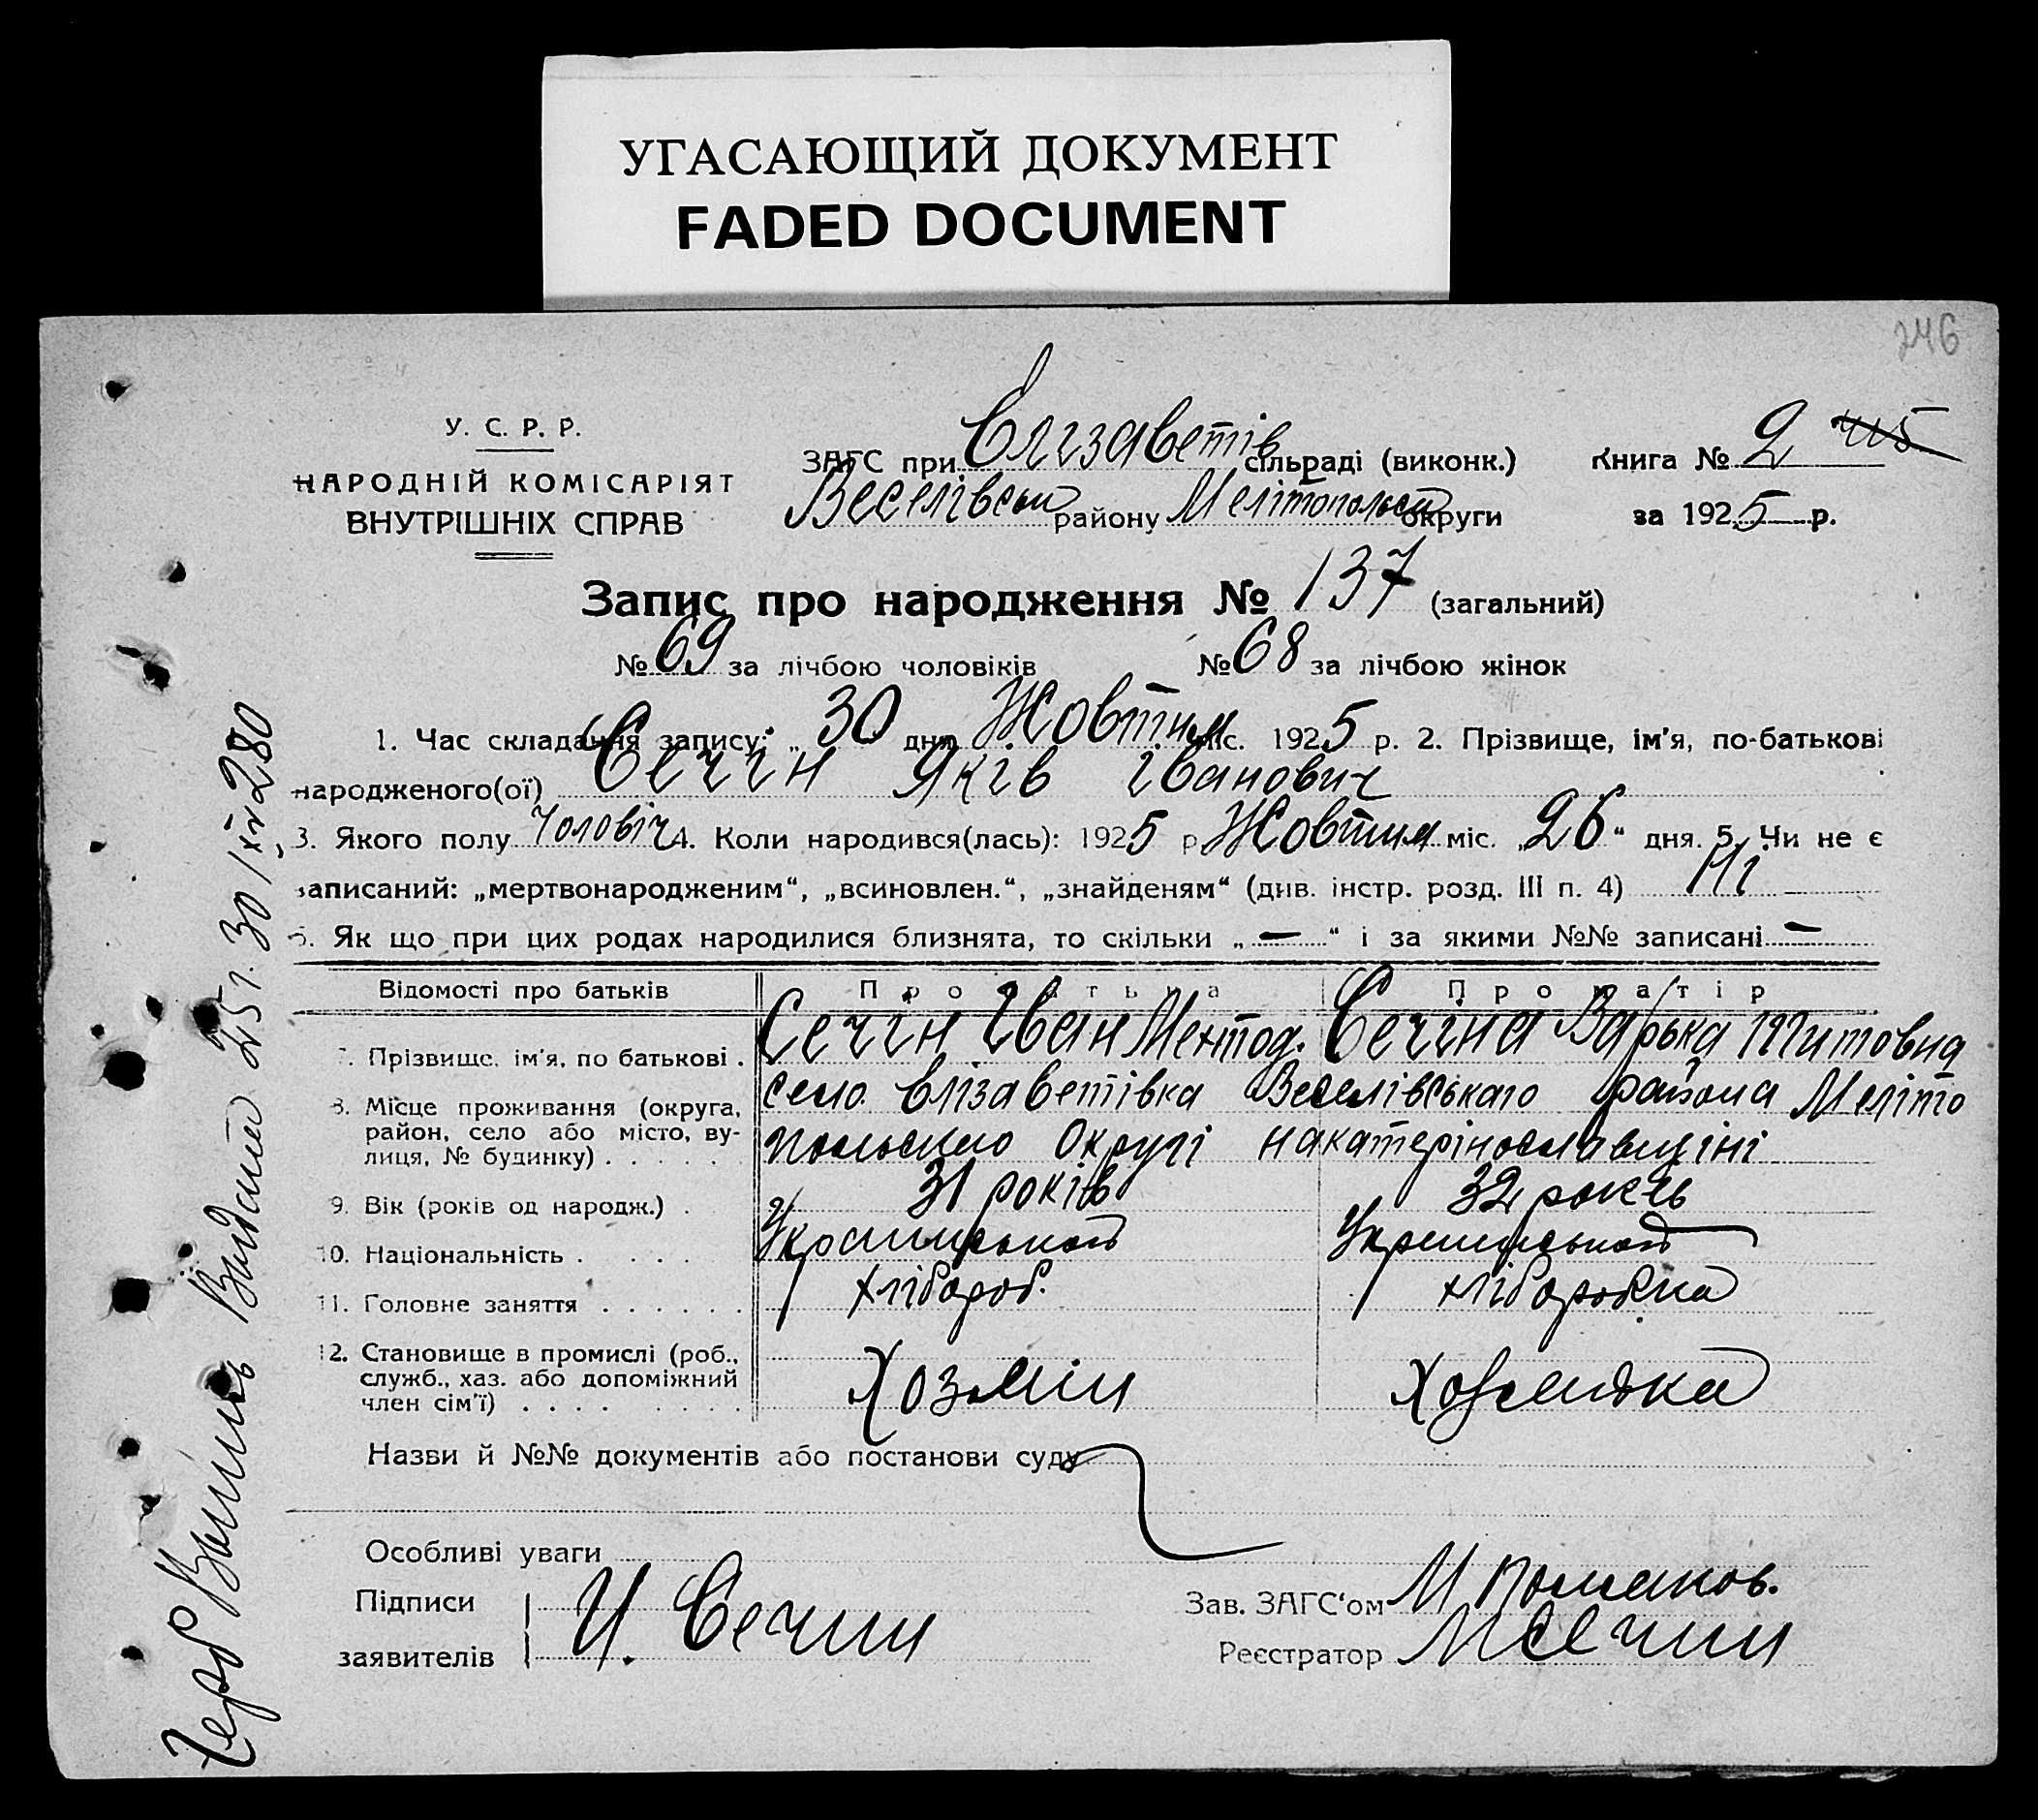 УГАСАЮЩИЙ ДОКУМЕНТ
FADED DOCUMENT
246
У. С. Р. Р.
НАРОДНІЙ КОМІСАРІЯТ
ВНУТРІШНІХ СПРАВ
ЗАГС при Єлізаветів сільраді (виконк.)
Веселівськ району Мелітопольськ округи
Книга № 2
за 1925 р.
Запис про народження № 137 (загальний)
№ 69 за лічбою чоловіків № 68 за лічбою жінок
1. Час складання запису: „ 30 дня Жовтня міс. 1925 р. 2. Прізвище, ім'я, по-батькові
народженого(ої) Сечін Яків Іванович
3. Якого полу Чоловіч 4. Коли народився(лась): 1925 р. Жовтня міс. „26“ дня. 5. Чи не є
записаний: „мертвонародженим“, „всиновлен.“, „знайденям“ (див. інстр. розд. III п. 4) Ні
6. Як що при цих родах народилися близнята, то скільки „—“ і за якими №№ записані —
Відомості про батьків Про батька Про матір
7. Прізвище, ім'я, по батькові . Сечін Іван Сечіна Варька Титовна
8. Місце проживання (округа, село Єлізаветівка Веселівського района Меліто
район, село або місто, ву- польского Округі
лиця, № будинку) . . . . . .
9. Вік (років од народж.) . 31 років 32 років
10. Національність . . . . . Українськой Українськой
11. Головне заняття . . . . . . хлібороб. хліборобка
12. Становище в промислі (роб.,
служб., хаз. або допоміжний Хозяїн Хозяйка
член сім'ї) . . . . . . . .
Назви й №№ документів або постанови суду
Особливі уваги
Підписи
заявителів И. Сечин
Зав. ЗАГС'ом М
Реєстратор М Сечин
Видано 25 г. 30/X № 280